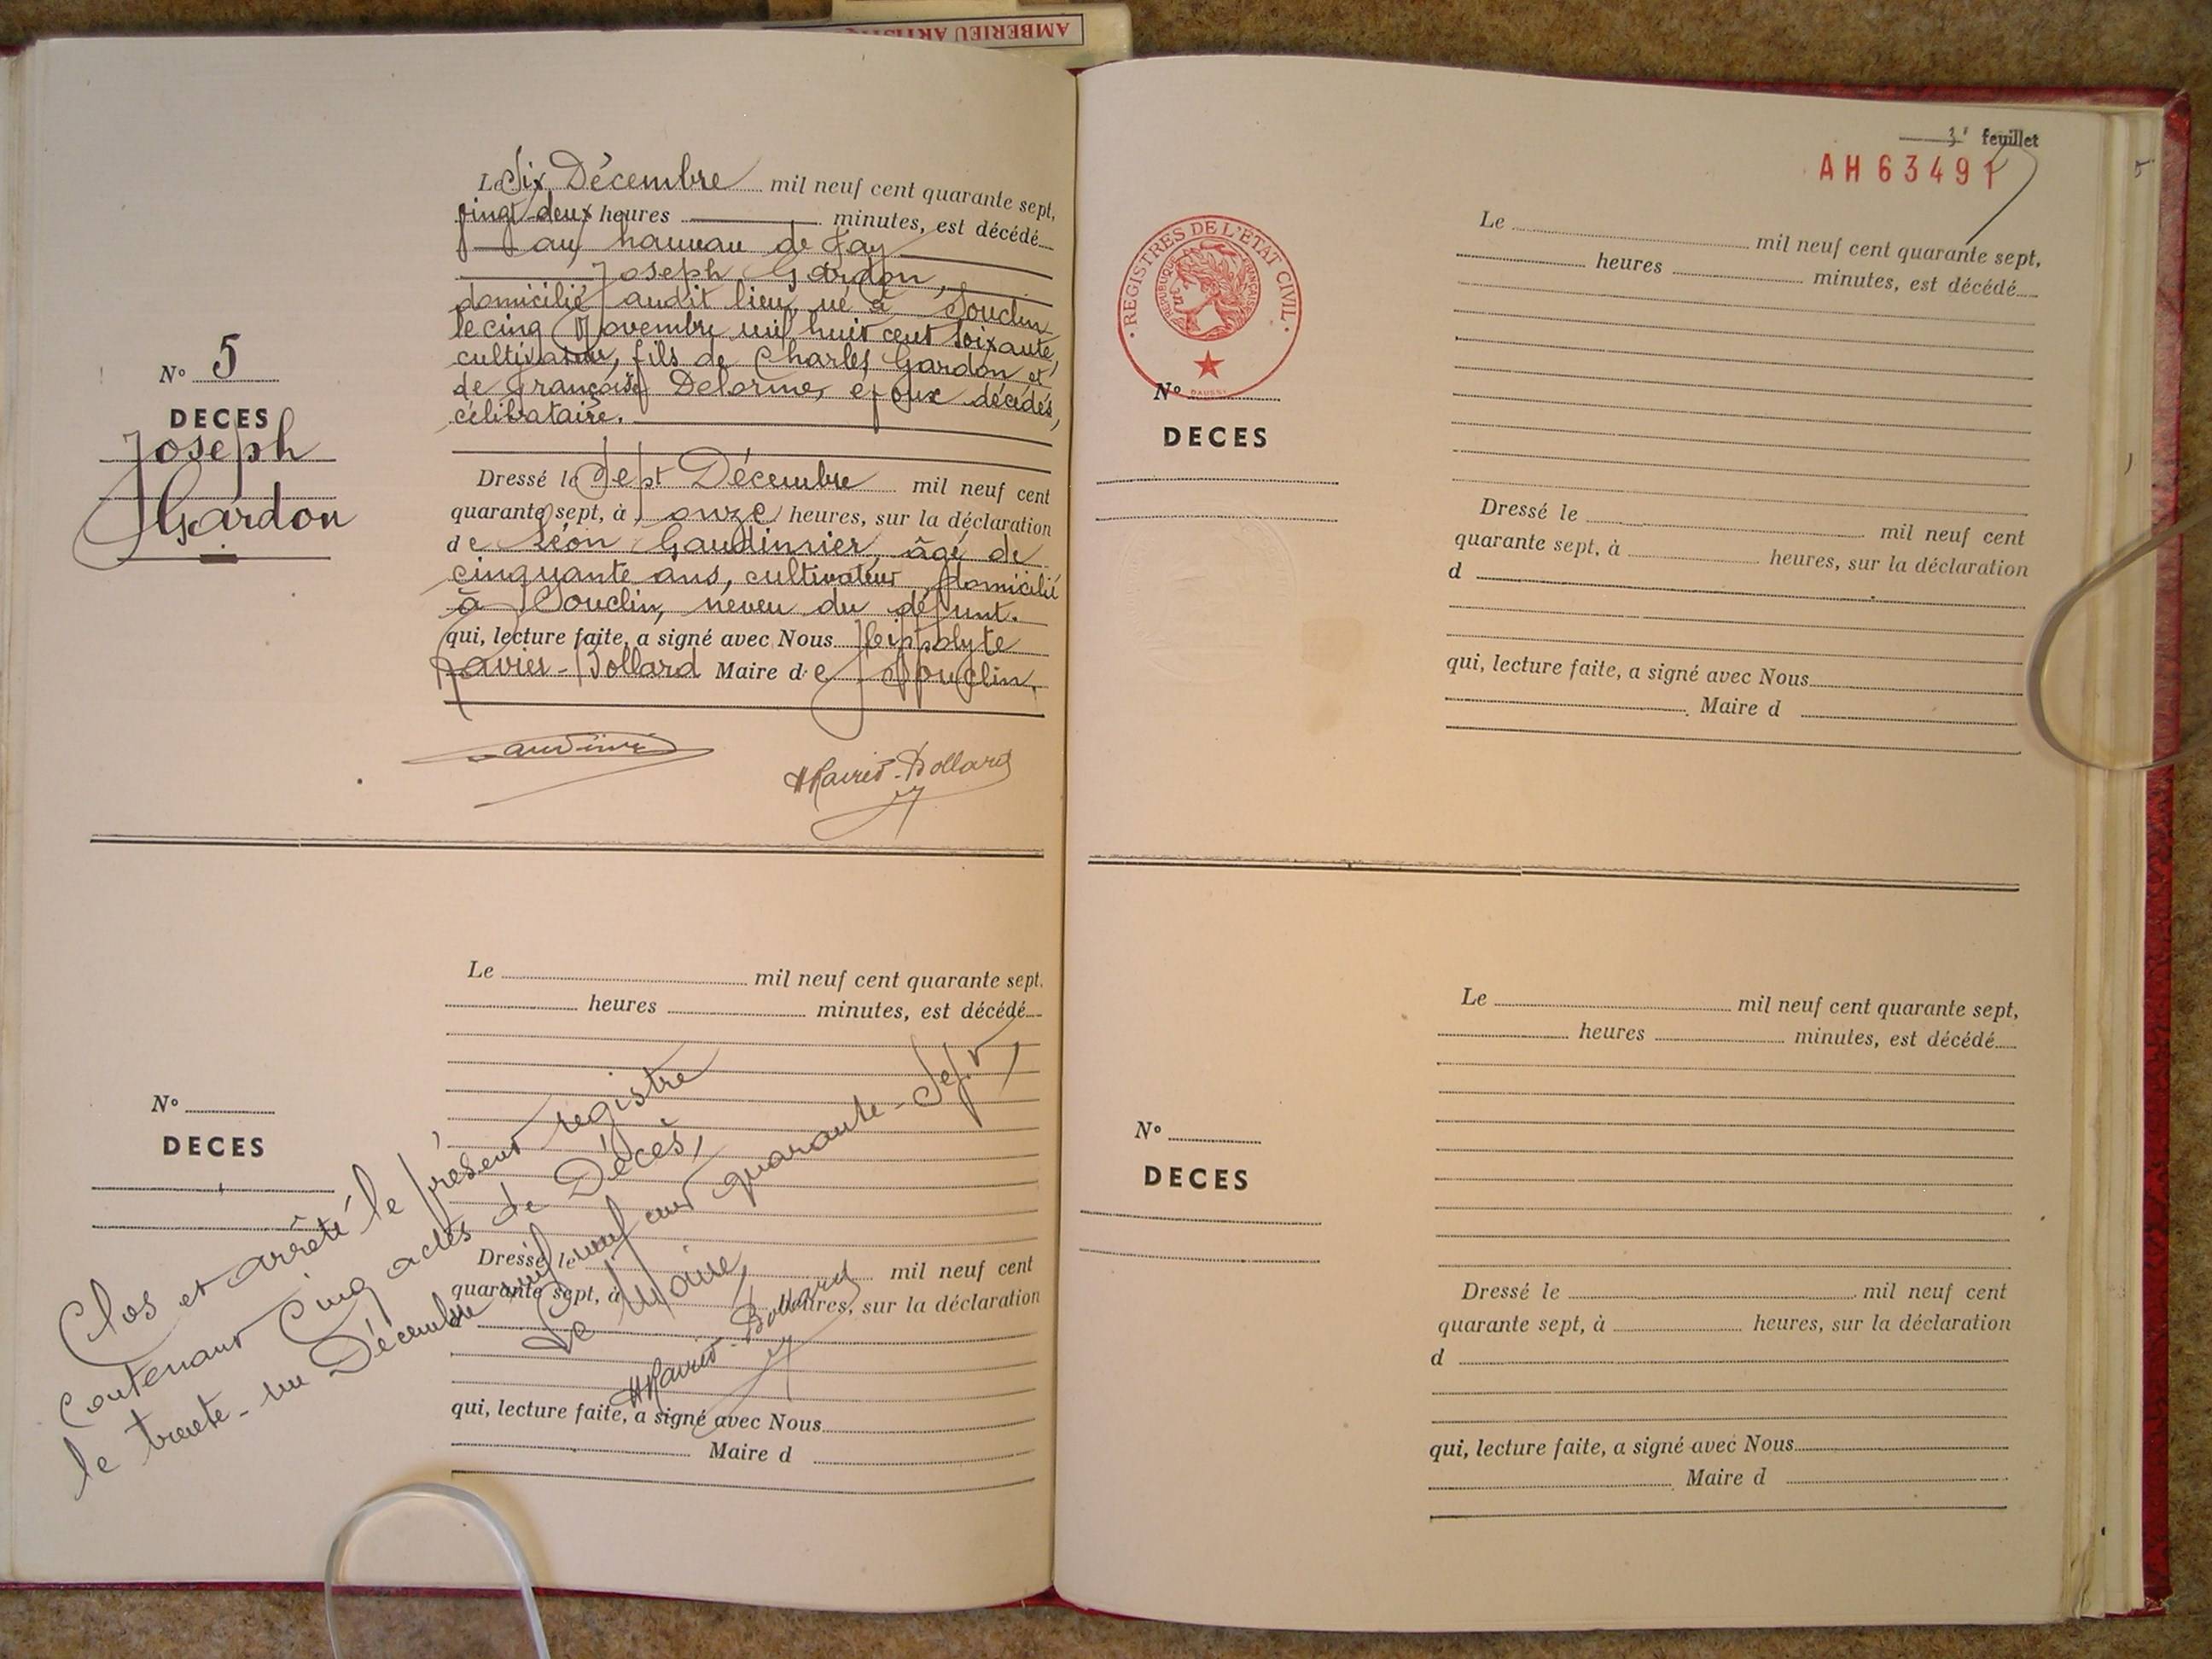 AMBERIEU ARTISTIQ
N° 5
DECES
Joseph
Gardon
Le Six Décembre mil neuf cent quarante sept,
vingt-deux heures minutes, est décédé
au hameau de Fay
Joseph Gardon,
domicilié audit lieu, né à Souclin
le cinq Novembre mil huit cent soixante,
cultivateur, fils de Charles Gardon et
de Françoise Delorme, époux décédés,
célibataire.
Dressé le Sept Décembre mil neuf cent
quarante sept, à onze heures, sur la déclaration
de Léon Gaudinnier, âgé de
cinquante ans, cultivateur domicilié
à Souclin, neveu du défunt.
qui, lecture faite, a signé avec Nous Hippolyte
Ravier-Bollard Maire de Souclin.
HRavier-Bollard
N°
DECES
Le mil neuf cent quarante sept.
heures minutes, est décédé
Dressé le mil neuf cent
quarante sept, à heures, sur la déclaration
qui, lecture faite, a signé avec Nous
Maire d
Clos et arrêté le présent registre
Contenant Cinq actes de Décès,
le trente-un Décembre mil neuf cent quarante-Sept,
Le Maire,
HRavier-Bollard
3e feuillet
AH 63491
REGISTRES DE L'ETAT CIVIL
REPUBLIQUE FRANÇAISE
DAUSSY
N°
DECES
Le mil neuf cent quarante sept,
heures minutes, est décédé
Dressé le mil neuf cent
quarante sept, à heures, sur la déclaration
d
qui, lecture faite, a signé avec Nous
Maire d
N°
DECES
Le mil neuf cent quarante sept,
heures minutes, est décédé
Dressé le mil neuf cent
quarante sept, à heures, sur la déclaration
d
qui, lecture faite, a signé avec Nous
Maire d